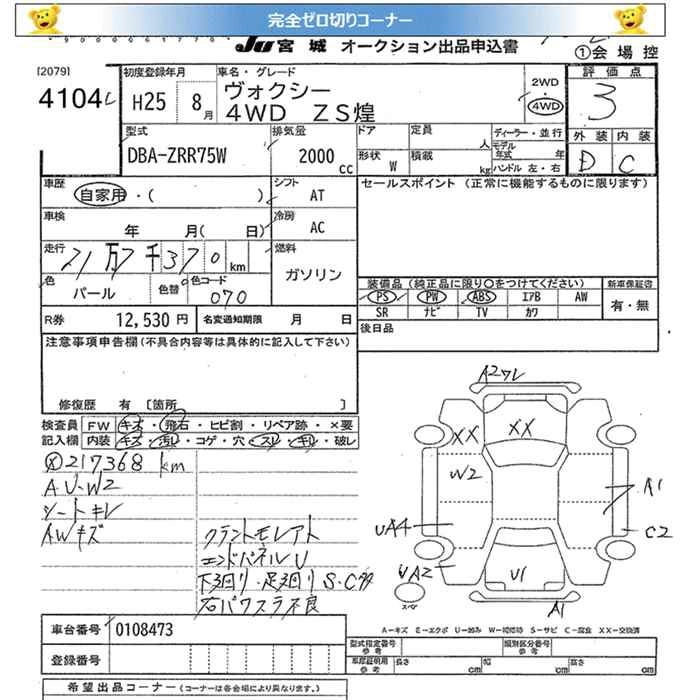 完全ゼロ切りコーナー
JU 宮 城 オークション出品申込書
①会 場 控
[2079]
4104 L
初度登録年月
H25 8月
車名・グレード
ヴォクシー
4WD ZS煌
2WD
・
4WD
評 価 点
3
外 装 内 装
D C
型式
DBA-ZRR75W
排気量
2000 cc
ドア 定員 人
形状 W 積載 kg
ディーラー・並 行
モデル年式 年
ハンドル 左・右
車歴
自家用・( )
シフト
AT
車検
年 月( 日)
冷房
AC
走行
21万7千370km
燃料
ガソリン
色
パール
色替
色コード
070
R券 12,530 円
名変通知期限 月 日
セールスポイント (正常に機能するものに限ります)
装備品(純正品に限り○をつけてください)
PS PW ABS エアB AW
SR ナビ TV カワ
新車保証書
有・無
後日品
注意事項申告欄(不具合内容等は具体的に記入して下さい)
修復歴 有 [箇所 ]
検査員
記入欄
FW キズ・飛石・ヒビ割・リペア跡・×要
内装 キズ・汚れ・コゲ・穴・スレ・キレ・破レ
217368 km
AU・W2
シートキレ
AWキズ
クラントモレアト
エンドパネルU
下廻り・足廻りS・C
右パワスラ不良
A2ワレ
XX
XX
W2
UA4
UA2
A1
C2
U1
A1
スペア
A-キズ E-エクボ U-凹み W-補修跡 S-サビ C-腐食 XX-交換済
車台番号 0108473
登録番号
型式指定番号
参考
類別区分番号
参考
車庫証明用
参考
長さ cm
幅 cm
高さ cm
希望出品コーナー(コーナーは各会場により異なります。)